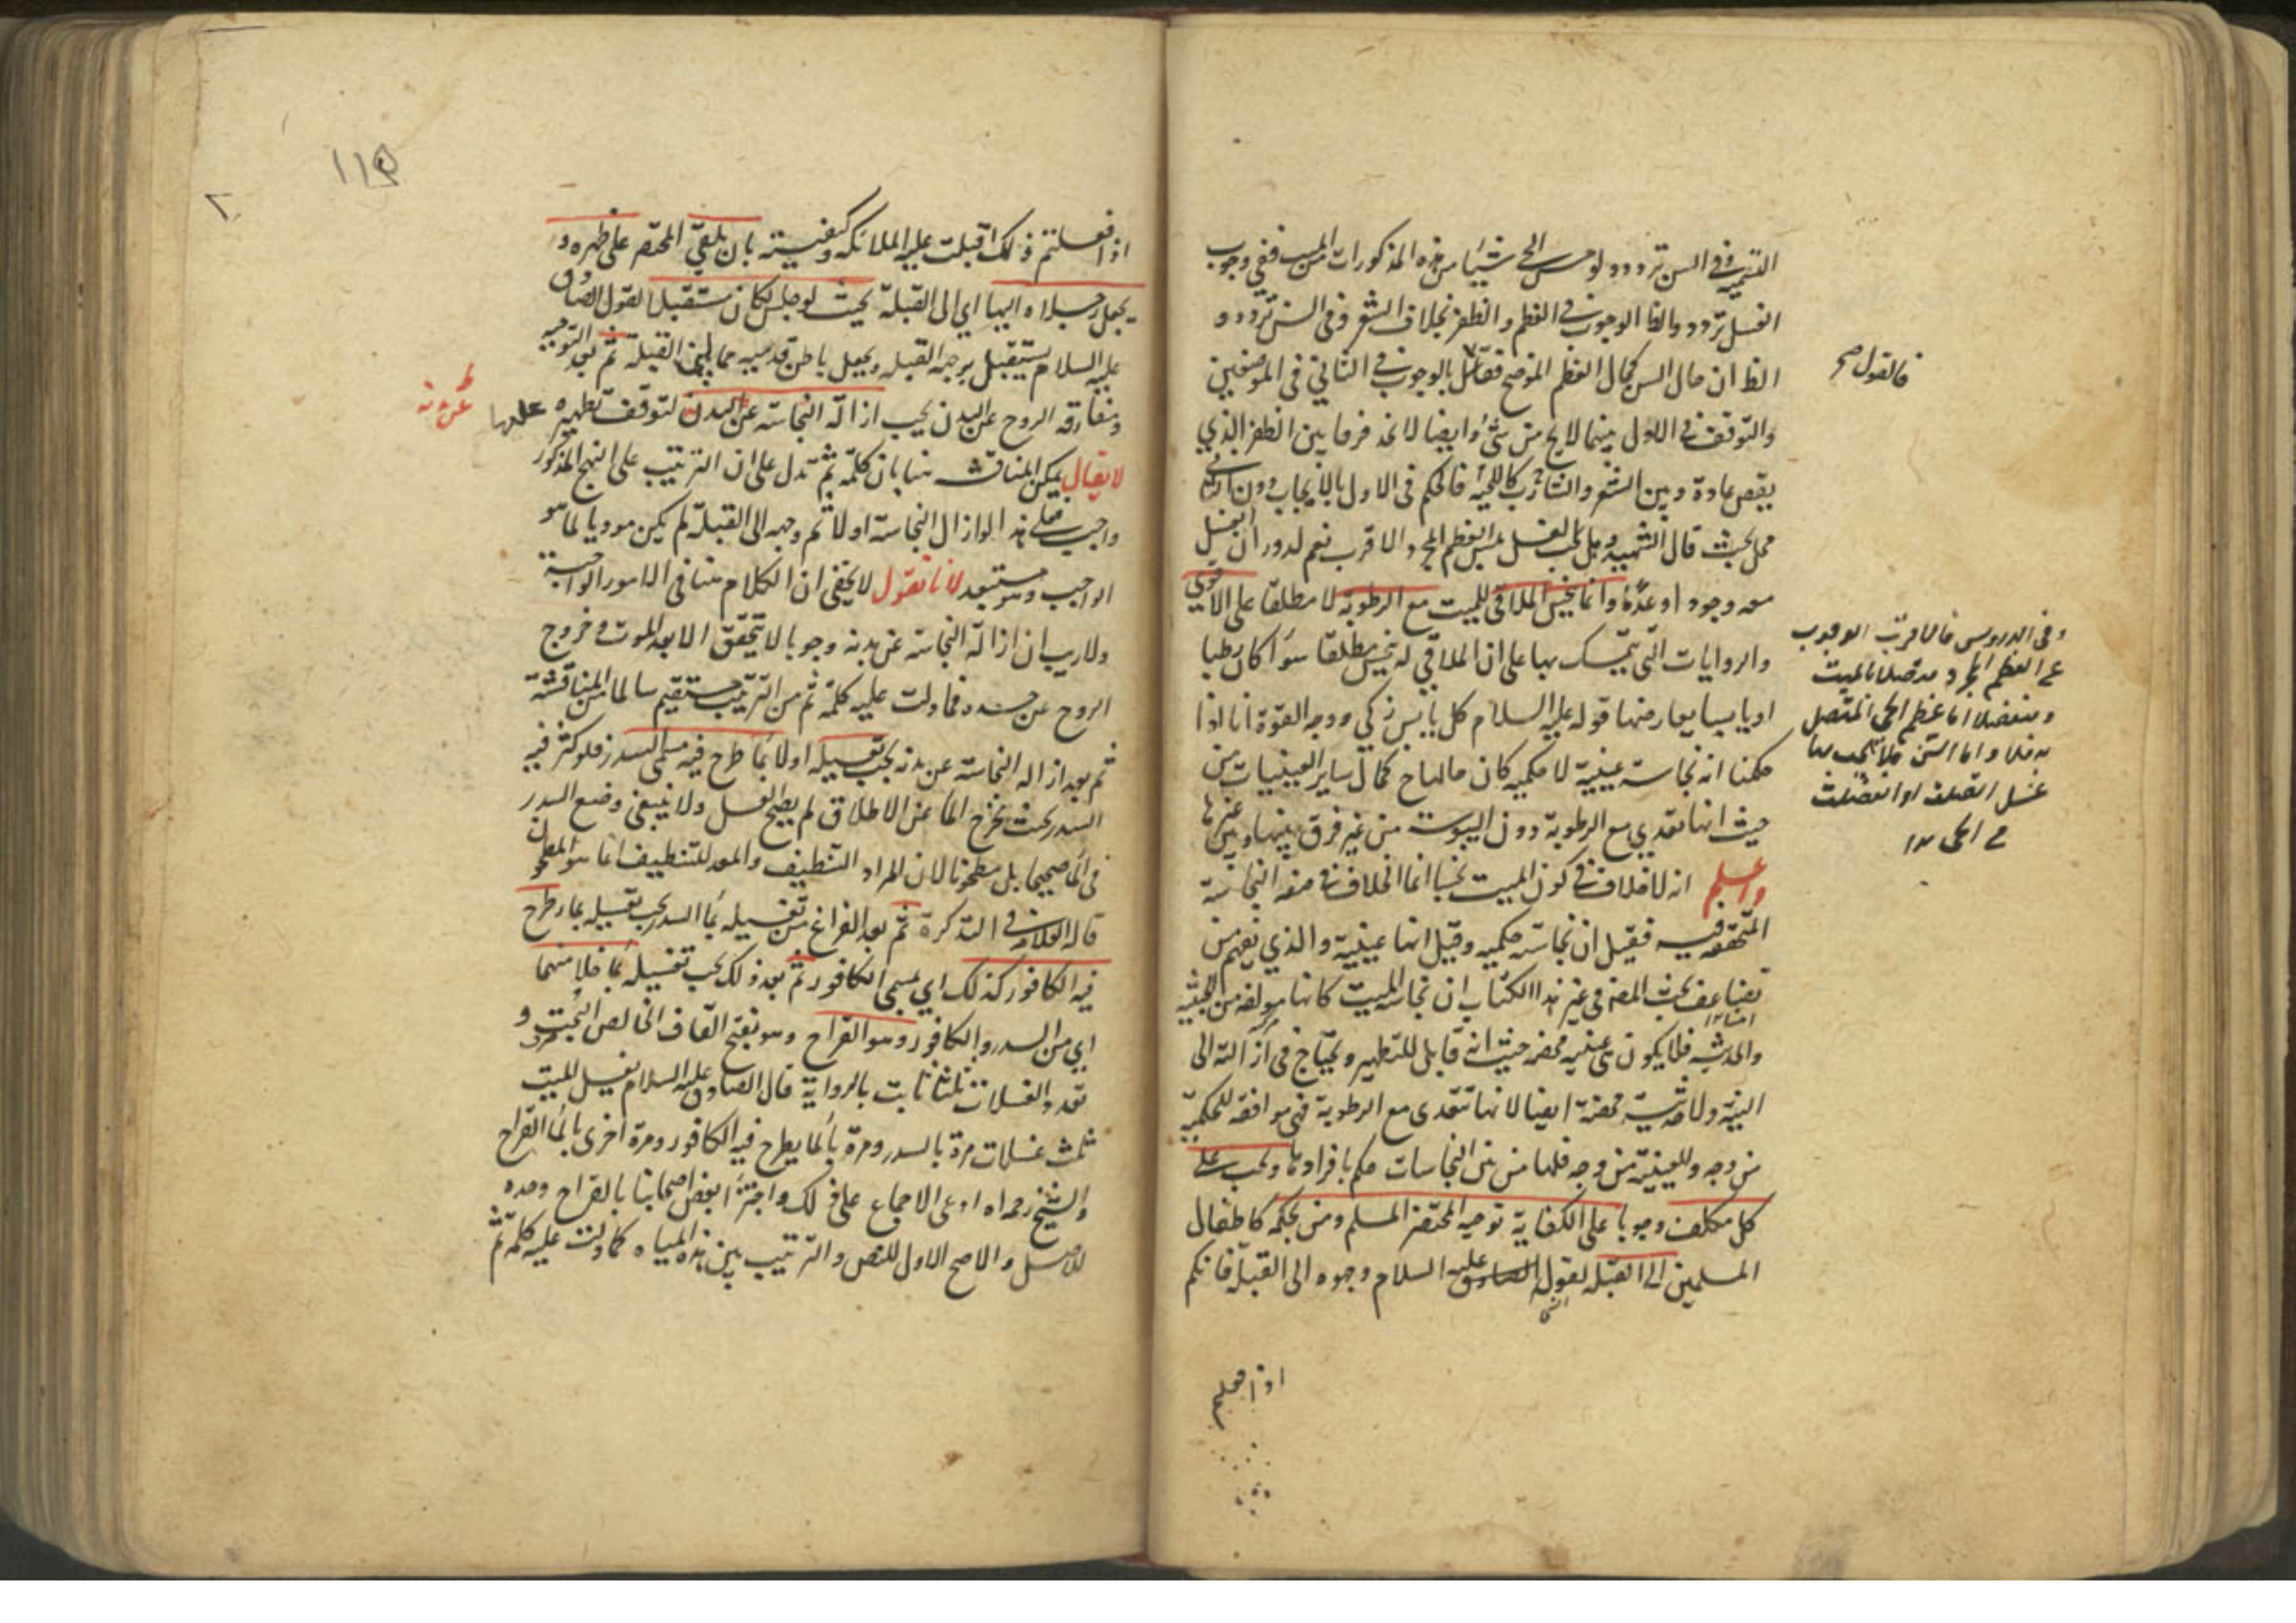 التتمية وفى السن تردد ولو مس الحى شيئا من هذه المذكورات من الميت ففى وجوب
الغسل تردد والظ الوجوب فى العظم والظفر بخلاف الشعر وفى السن تردد و
الظ ان حال السن كحال العظم الموضح فقائل بالوجوب فى الثانى فى الموضعين
فالقول صح
والتوقف فى الاول بينهما لا يخ من شئ وايضا لا نجد فرقا بين الظفر الذي
يقص عادة وبين الشعر والشارب كاللحية فالحكم فى الاول بالايجاب دون الثانى
محل بحث قال الشهيد وهل يجب الغسل بمس العظم المجرد الاقرب نعم لدوران الغسل
معه وجودا وعدما وانما ينجس الملاقى للميت مع الرطوبة لا مطلقا على الاقوى
والروايات التى يتمسك بها على ان الملاقى له نجس مطلقا سواء كان رطبا
او يابسا يعارضها قوله عليه السلام كل يابس زكى ووجه القوة انا اذا
حكمنا انه نجاسة عينية لا حكمية كان حالها ح كحال ساير العينيات من
حيث انها تتعدى مع الرطوبة دون اليبوسة من غير فرق بينها وبين غيرها
واعلم انه لا خلاف فى كون الميت نجسا انما الخلاف فى صفة النجاسة
المتحققة فيه فقيل ان نجاسته حكمية وقيل انها عينية والذي يفهم من
تضاعيف بحث المص فى غير هذا الكتاب ان نجاسة الميت كانها مولفة من الخبثية
والحدثية فلا يكون عينية محضة حيث انه قابل للتطهير ويحتاج فى ازالته الى
النية ولا حدثية محضة ايضا لانها تتعدى مع الرطوبة فهى موافقة للحكمية
من وجه وللعينية من وجه فلها من بين النجاسات حكم بافرادها ويجب على
كل مكلف وجوبا على الكفاية توجيه المحتضر المسلم ومن بحكمه كاطفال
المسلمين الى القبلة لقول الصادق عليه السلام وجهوه الى القبلة فانكم
اذا فعلتم
وفى الدروس فالاقرب الوجوب
فى العظم المجرد متصلا بالميت
ومنفصلا اما عظم الحى المتصل
به فلا واما السن فلا يجب بها
غسل اتصلت او انفصلت
من الحى ١٢
١١٥
اذا فعلتم ذلك اقبلت عليه الملائكة وكيفيته بان يلقى المحتضر على ظهره و
يجعل رجلاه اليها اى الى القبلة بحيث لو جلس لكان مستقبلا لقول الصادق
عليه السلام يستقبل بوجهه القبلة ويجعل باطن قدميه مما يلى القبلة ثم بعد التوجيه
ومفارقة الروح عن البدن يجب ازالة النجاسة عن البدن لتوقف تطهيره عليها
عن بدنه
لا يقال يمكن المناقشة هنا بان كلمة ثم تدل على ان الترتيب على النهج المذكور
واجب فعلى هذا لو ازال النجاسة اولا ثم وجه الى القبلة لم يكن موديا لما هو
الواجب وهو مستبعد لانا نقول لا يخفى ان الكلام هنا فى الامور الواجبة
ولا ريب ان ازالة النجاسة عن بدنه وجوبا لا يتحقق الا بعد الموت وخروج
الروح عن جسده فما دلت عليه كلمة ثم من الترتيب مستقيم سالما عن المناقشة
ثم بعد ازالة النجاسة عن بدنه يجب تغسيله اولا بما طرح فيه مسمى السدر فلو كثر فيه
السدر بحيث يخرج الماء عن الاطلاق لم يصح الغسل ولا ينبغى وضع السدر
فى الماء صحيحا بل مطحونا لان المراد التنظيف والمعد للتنظيف انما هو المطحون
قاله العلامة فى التذكرة ثم بعد الفراغ من تغسيله بماء السدر يجب تغسيله بماء طرح
فيه الكافور كذلك اى مسمى الكافور ثم بعد ذلك يجب تغسيله بماء خلا منهما
اى من السدر والكافور وهو القراح وهو بفتح القاف الخالص البحت و
تعدد الغسلات ثلثا ثابت بالرواية قال الصادق عليه السلام يغسل الميت
ثلث غسلات مرة بالسدر ومرة بالماء يطرح فيه الكافور ومرة اخرى بالماء القراح
والشيخ رحمه الله ادعى الاجماع على ذلك واجتزأ بعض اصحابنا بالقراح وحده
للاصل والاصح الاول للنص والترتيب بين هذه المياه كما دلت عليه كلمة ثم